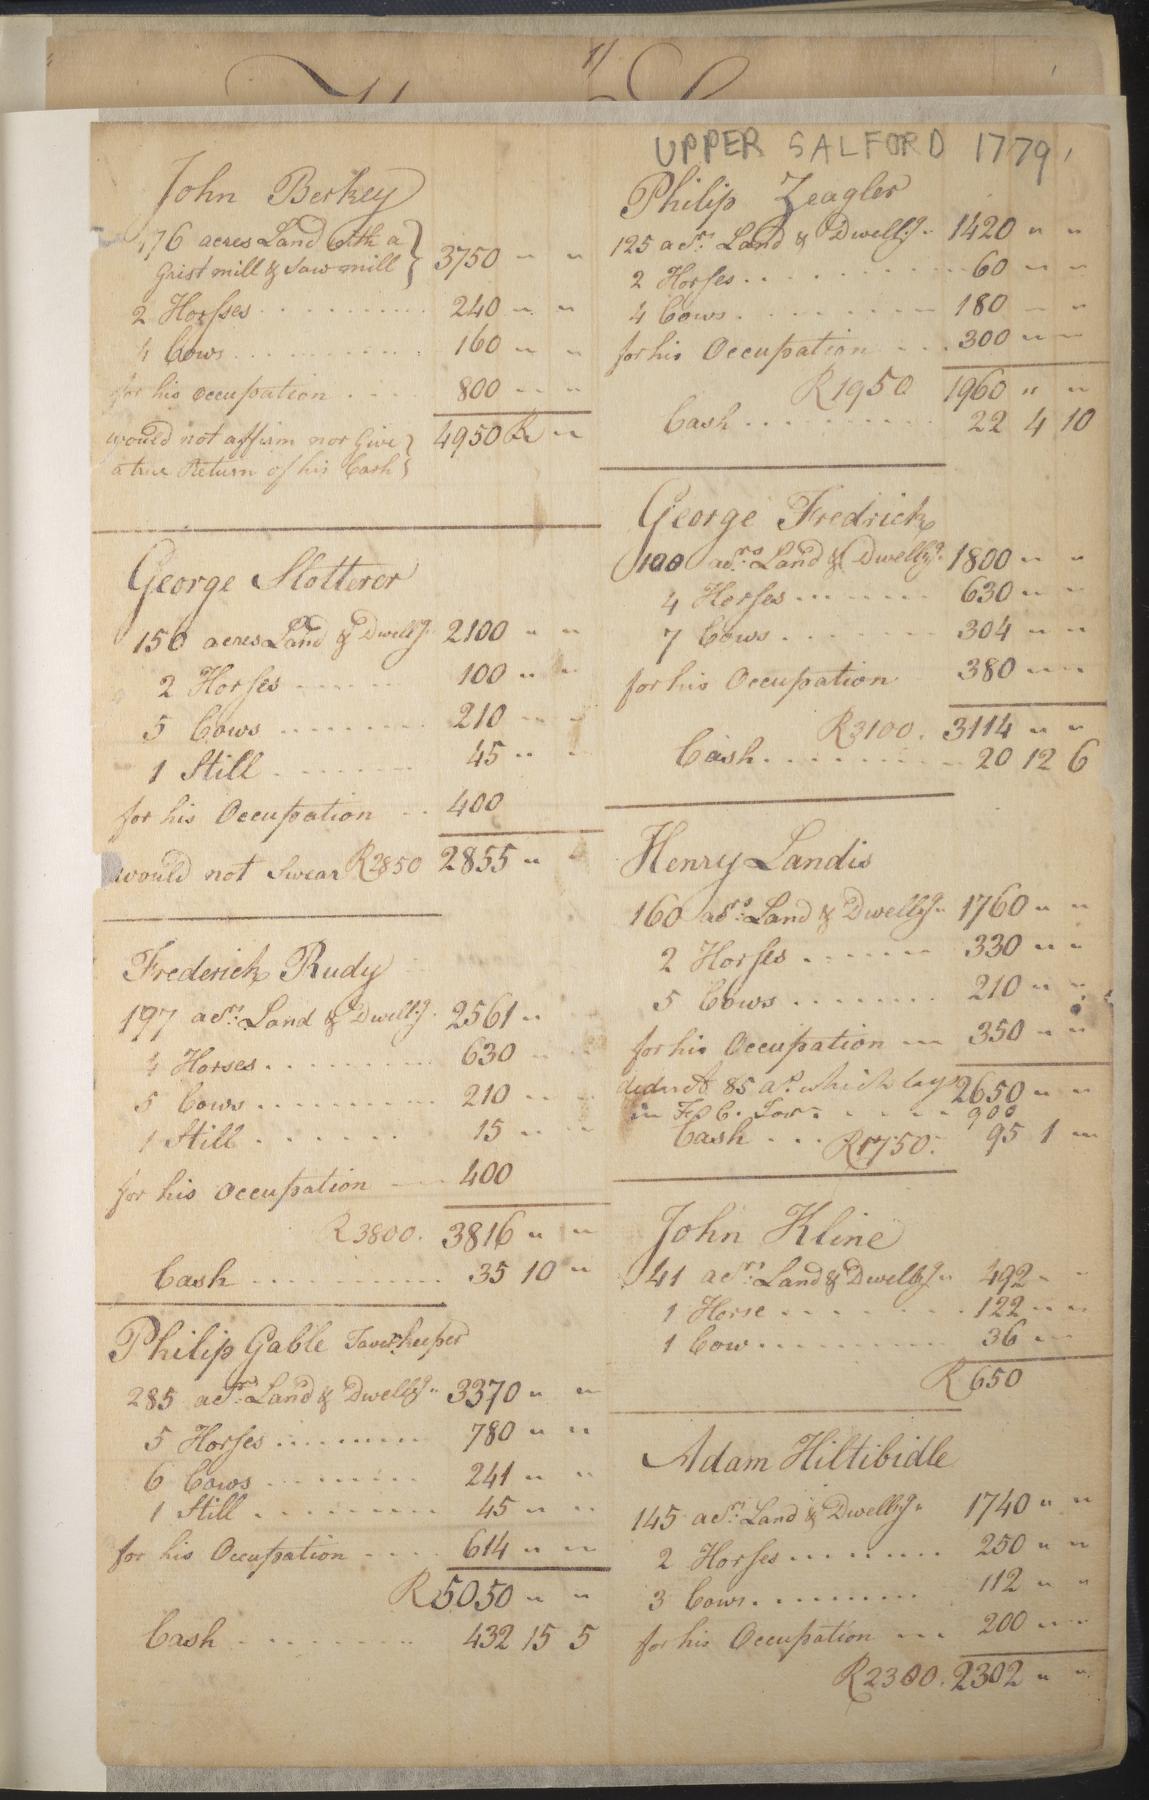 1/
UPPER SALFORD 1779
John Berkey
176 acres Land with a
Grist mill & Saw mill } 3750 " "
2 Horses 240 " "
4 Cows 160 " "
for his occupation 800 " "
4950 R "
would not affirm nor Give
a true Return of his Cash
George Slotteror
150 acres Land & Dwellg. 2100 " "
2 Horses 100 " "
5 Cows 210 " "
1 Still 45 " "
for his Occupation 400
would not Swear R2850 2855 " "
Frederick Rudy
197 acrs. Land & Dwellg. 2561 "
4 Horses 630 " "
5 Cows 210 " "
1 Still 15 " "
for his Occupation 400
R3800. 3816 " "
Cash 35 10 "
Philip Gable Tavernkeeper
285 acrs. Land & Dwellg. 3370 " "
5 Horses 780 " "
6 Cows 241 " "
1 Still 45 " "
for his Occupation 614 " "
R5050 " "
Cash 432 15 5
Philip Zeagler
125 acrs. Land & Dwellg. 1420 " "
2 Horses 60 " "
4 Cows 180 " "
for his Occupation 300 " "
R1950 1960 " "
Cash 22 4 10
George Fredrick
100 acrs. Land & Dwellg. 1800 " "
4 Horses 630 " "
7 Cows 304 " "
for his Occupation 380 " "
R3100. 3114 " "
Cash 20 12 6
Henry Landis
160 acrs. Land & Dwellg. 1760 " "
2 Horses 330 " "
5 Cows 210 " "
for his Occupation 350 " "
deduct 85 as. which lays 2650 " "
in 900
Cash R1750. 95 1 "
John Kline
41 acrs. Land & Dwellg. 492 " "
1 Horse 122 " "
1 Cow 36 "
R 650
Adam Hiltibidle
145 acrs. Land & Dwellg. 1740 " "
2 Horses 250 " "
3 Cows 112 " "
for his Occupation 200 " "
R2300. 2302 " "